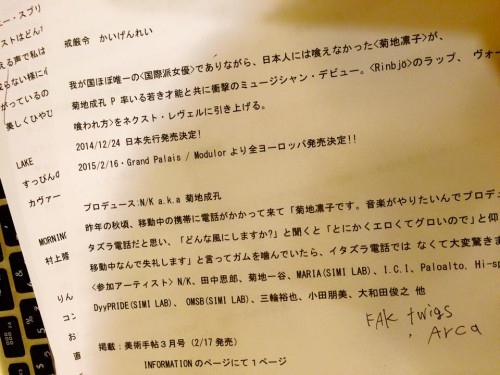 ー・スプリ
ストはどん
える声で私は
戒厳令　かいげんれい
我が国ほぼ唯一の<国際派女優>でありながら、日本人には喰えなかった<菊地凛子>が、
菊地成孔 P 率いる若き才能と共に衝撃のミュージシャン・デビュー。<Rinbjö>のラップ、 ヴォ
喰われ方>をネクスト・レヴェルに引き上げる。
2014/12/24 日本先行発売決定!
2015/2/16・Grand Palais / Modulor より全ヨーロッパ発売決定!!
がっているの
美しくひやひ
LAKE
すっぴん
カヴァー
MORNING
村上隆
プロデュース:N/K a.k.a 菊地成孔
昨年の秋頃、移動中の携帯に電話がかかって来て「菊地凛子です。音楽がやりたいんでプロデ
タズラ電話だと思い、「どんな風にしますか?」と聞くと「とにかくエロくてグロいので」と仰
移動中なんで失礼します」と言ってガムを噛んでいたら、イタズラ電話では なくて大変驚き
<参加アーティスト> N/K、田中思郎、菊地一谷、MARIA(SIMI LAB)、I.C.I、Paloalto、Hi-sp
DyyPRIDE(SIMI LAB)、 OMSB(SIMI LAB)、三輪裕也、小田朋美、大和田俊之 他
りん
コン
お
直
掲載:美術手帖3月号 (2/17 発売)
INFORMATION のページにて1ページ
FAK twigs
, Arca